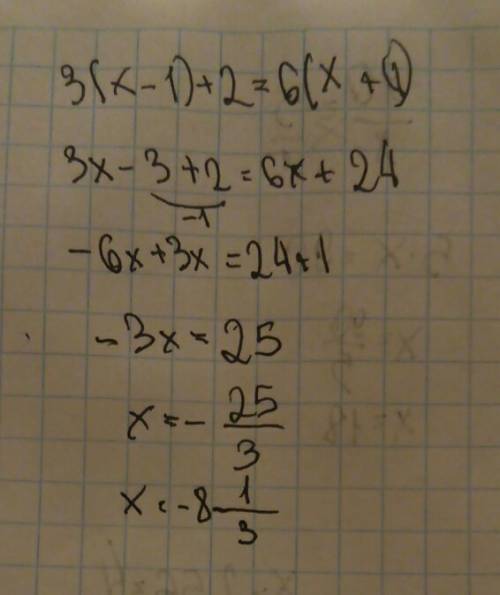 3(x-1)+2=6(x+4)
3x-3+2=6x+24
-1
-6x+3x=24+1
-3x=25
x=-25/3
x=-8 1/3